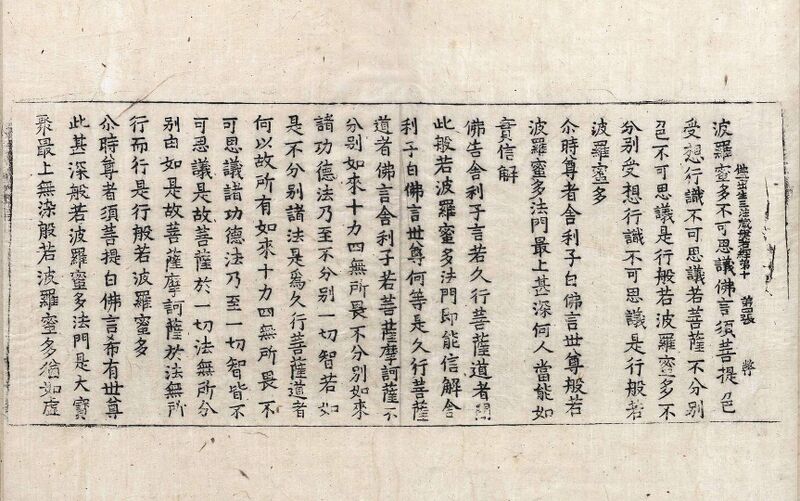 佛母出生三法藏般若經第十 第四張 將
波羅蜜多不可思議佛言須菩提色
受想行識不可思議若菩薩不分別
色不可思議是行般若波羅蜜多不
分別受想行識不可思議是行般若
波羅蜜多
尒時尊者舍利子白佛言世尊般若
波羅蜜多法門最上甚深何人當能如
實信解
佛告舍利子言若久行菩薩道者聞
此般若波羅蜜多法門即能信解舍
利子白佛言世尊何等是久行菩薩
道者佛言舍利子若菩薩摩訶薩不
分別如來十力四無所畏不分別如來
諸功德法乃至不分別一切智若如
是不分別諸法是爲久行菩薩道者
何以故所有如來十力四無所畏不
可思議諸功德法乃至一切智皆不
可思議是故菩薩於一切法無所分
別由如是故菩薩摩訶薩於法無所
行而行是行般若波羅蜜多
尒時尊者須菩提白佛言希有世尊
此甚深般若波羅蜜多法門是大寶
聚最上無染般若波羅蜜多猶如虛